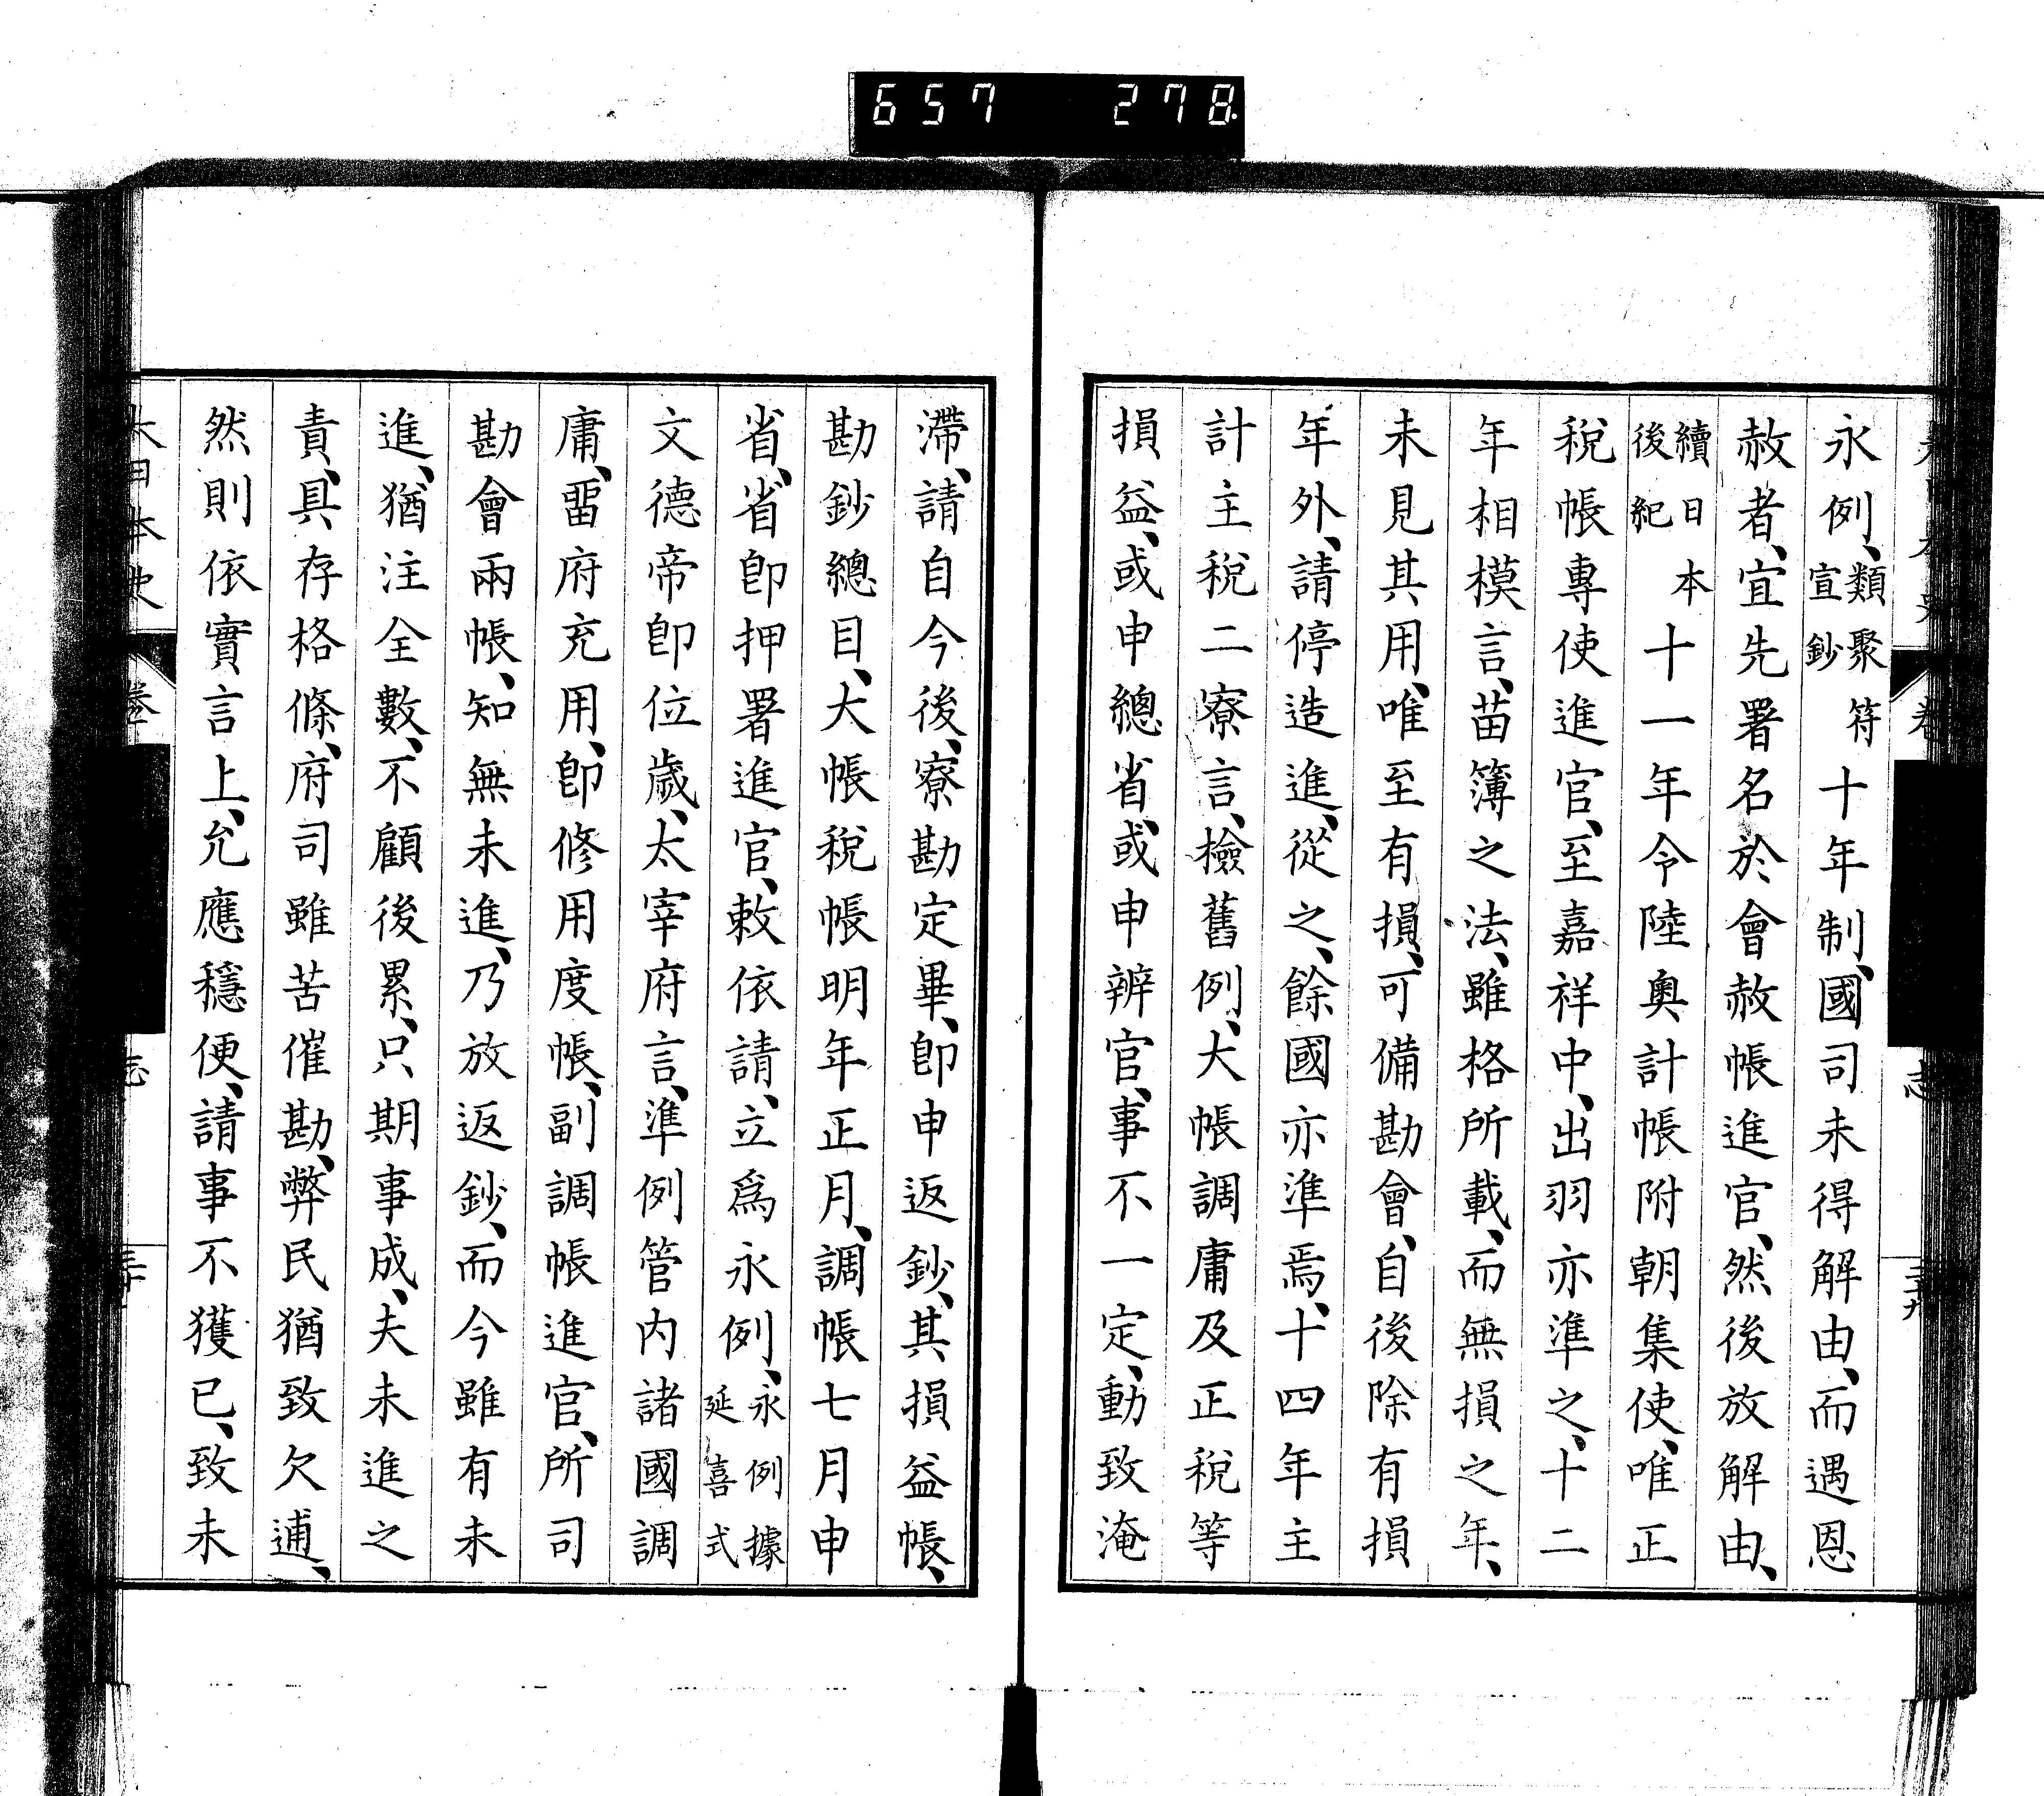 657 278
永例、類聚符宣鈔十年制、國司未得解由、而遇恩
赦者、宜先署名於會赦帳進官、然後放解由、
續日本後紀十一年令陸奧計帳附朝集使、唯正
稅帳專使進官、至嘉祥中、出羽亦準之、十二
年相模言、苗簿之法、雖格所載、而無損之年、
未見其用、唯至有損、可備勘會、自後除有損
年外、請停造進、從之、餘國亦準焉、十四年主
計主稅二寮言、檢舊例、大帳調庸及正稅等
損益、或申總省、或申辨官、事不一定、動致淹
滯、請自今後、寮勘定畢、卽申返鈔、其損益帳、
勘鈔總目、大帳稅帳明年正月、調帳七月申
省、省卽押署進官、敕依請、立爲永例、永例據延喜式
文德帝卽位歲、太宰府言、準例管內諸國調
庸、畱府充用、卽修用度帳、副調帳進官、所司
勘會兩帳、知無未進、乃放返鈔、而今雖有未
進、猶注全數、不顧後累、只期事成、夫未進之
責、具存格條、府司雖苦催勘、弊民猶致欠逋、
然則依實言上、允應穩便、請事不獲已、致未
大日本史 卷 志